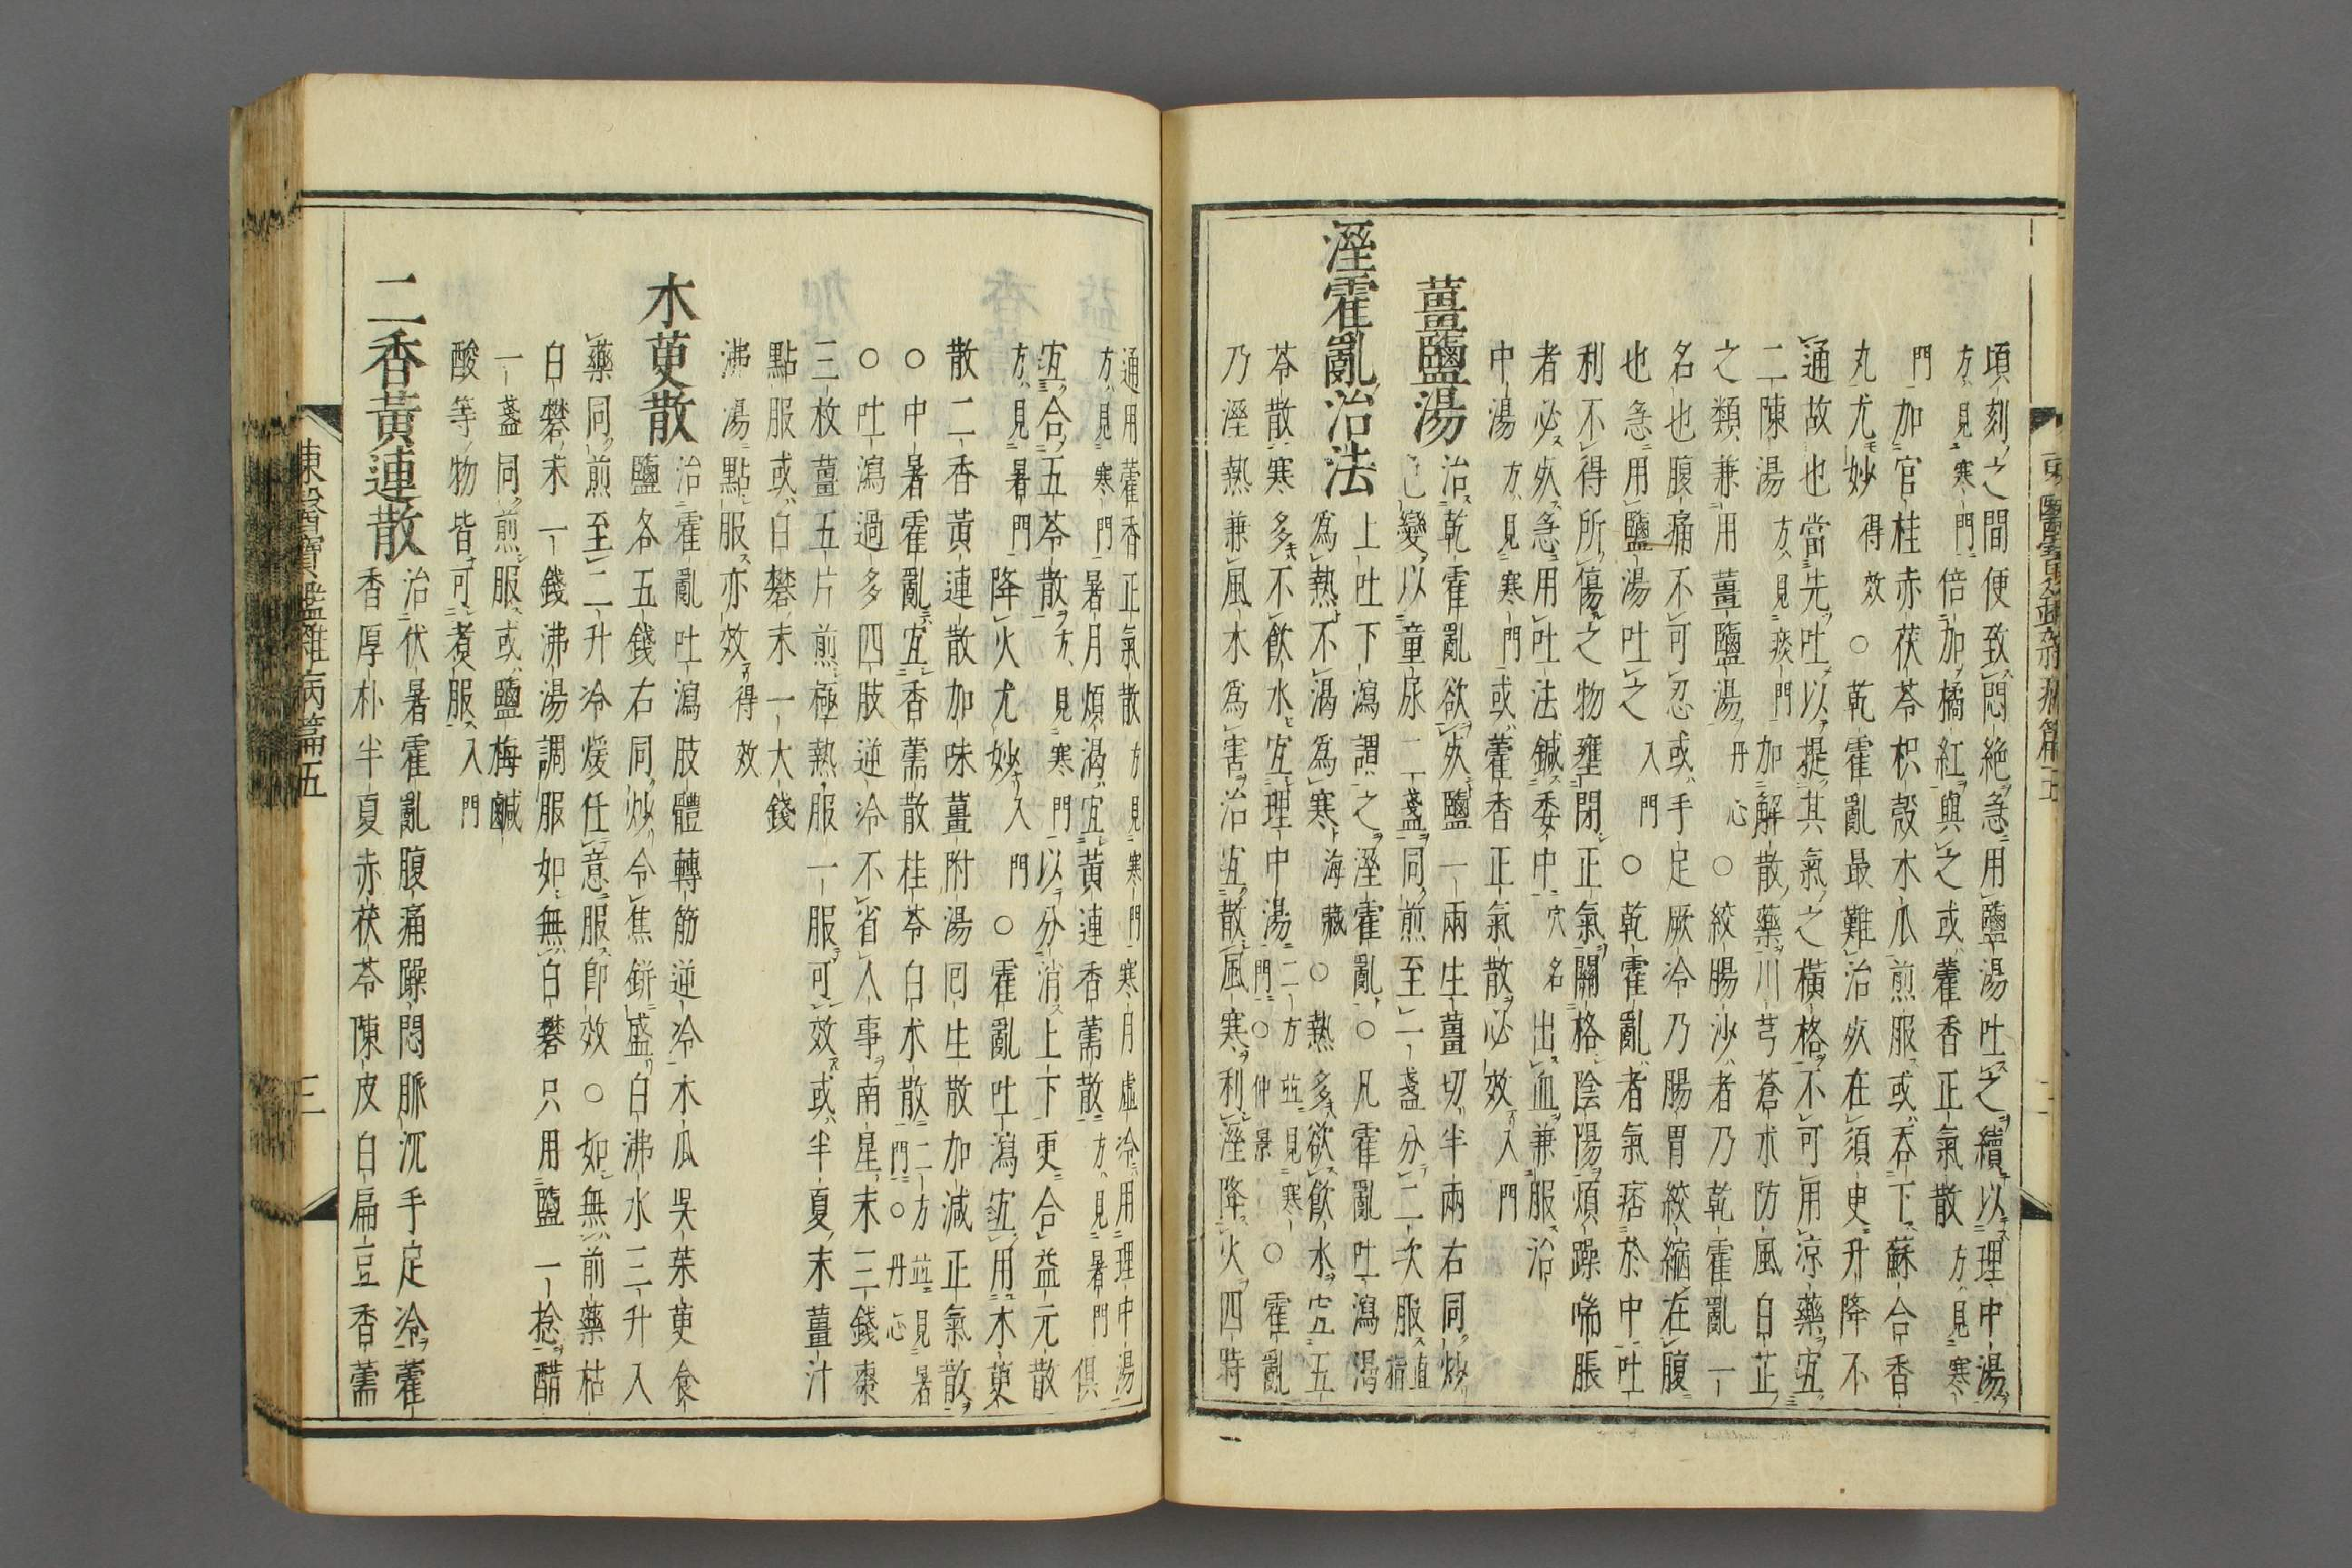 頃刻之間便致悶絶急用鹽湯吐之續以理中湯
方見寒門倍加橘紅與之或藿香正氣散方見寒
門加官桂赤茯苓枳殼水瓜煎服或吞下蘇合香
丸尤妙得效○乾霍亂最難治死在須臾升降不
通故也當先吐以提其氣之橫格不可用凉藥宜
二陳湯方見痰門加解散藥川芎蒼朮防風白芷
之類兼用薑鹽湯丹心○絞腸沙者乃乾霍亂一
名也腹痛不可忍或手足厥冷乃腸胃絞縮在腹
也急用鹽湯吐之入門○乾霍亂者氣痞於中吐
利不得所傷之物壅閉正氣關格陰陽煩躁喘脹
者必死急用吐法鍼委中穴名出血兼服治
中湯方見寒門或藿香正氣散必效入門
薑鹽湯治乾霍亂欲死鹽一兩生薑切半兩右同炒
色變以童尿二盞同煎至一盞分二次服直指
溼霍亂治法上吐下瀉謂之溼霍亂○凡霍亂吐瀉渴
爲熱不渴爲寒海藏○熱多欲飮水宜五
苓散寒多不飮水宜理中湯二方並見寒門○仲景○霍亂
乃溼熱兼風木爲害治宜散風寒利溼降火四時
東醫寶鑑雜病篇五
通用藿香正氣散方見寒門寒月虛冷用理中湯
方見寒門暑月煩渴宜黃連香薷散方見暑門俱
宜合五苓散方見寒門以分消上下更合益元散
方見暑門降火尤妙入門○霍亂吐瀉宜用木萸
散二香黃連散加味薑附湯囘生散加減正氣散
○中暑霍亂宜香薷散桂苓白朮散二方並見暑門○丹心
○吐瀉過多四肢逆冷不省人事南星末三錢棗
三枚薑五片煎極熱服一服可效或半夏末薑汁
點服或白礬末一大錢
沸湯點服亦效得效
木萸散治霍亂吐瀉肢體轉筋逆冷木瓜吳茱萸食
鹽各五錢右同炒令焦缾盛白沸水三升入
藥同煎至二升冷煖任意服卽效○如無前藥枯
白礬末一錢沸湯調服如無白礬只用鹽一捻醋
一盞同煎服或鹽梅鹹
酸等物皆可煮服入門
二香黃連散治伏暑霍亂腹痛躁悶脈沉手足冷藿
香厚朴半夏赤茯苓陳皮白扁豆香薷
東醫寶鑑雜病篇五
三